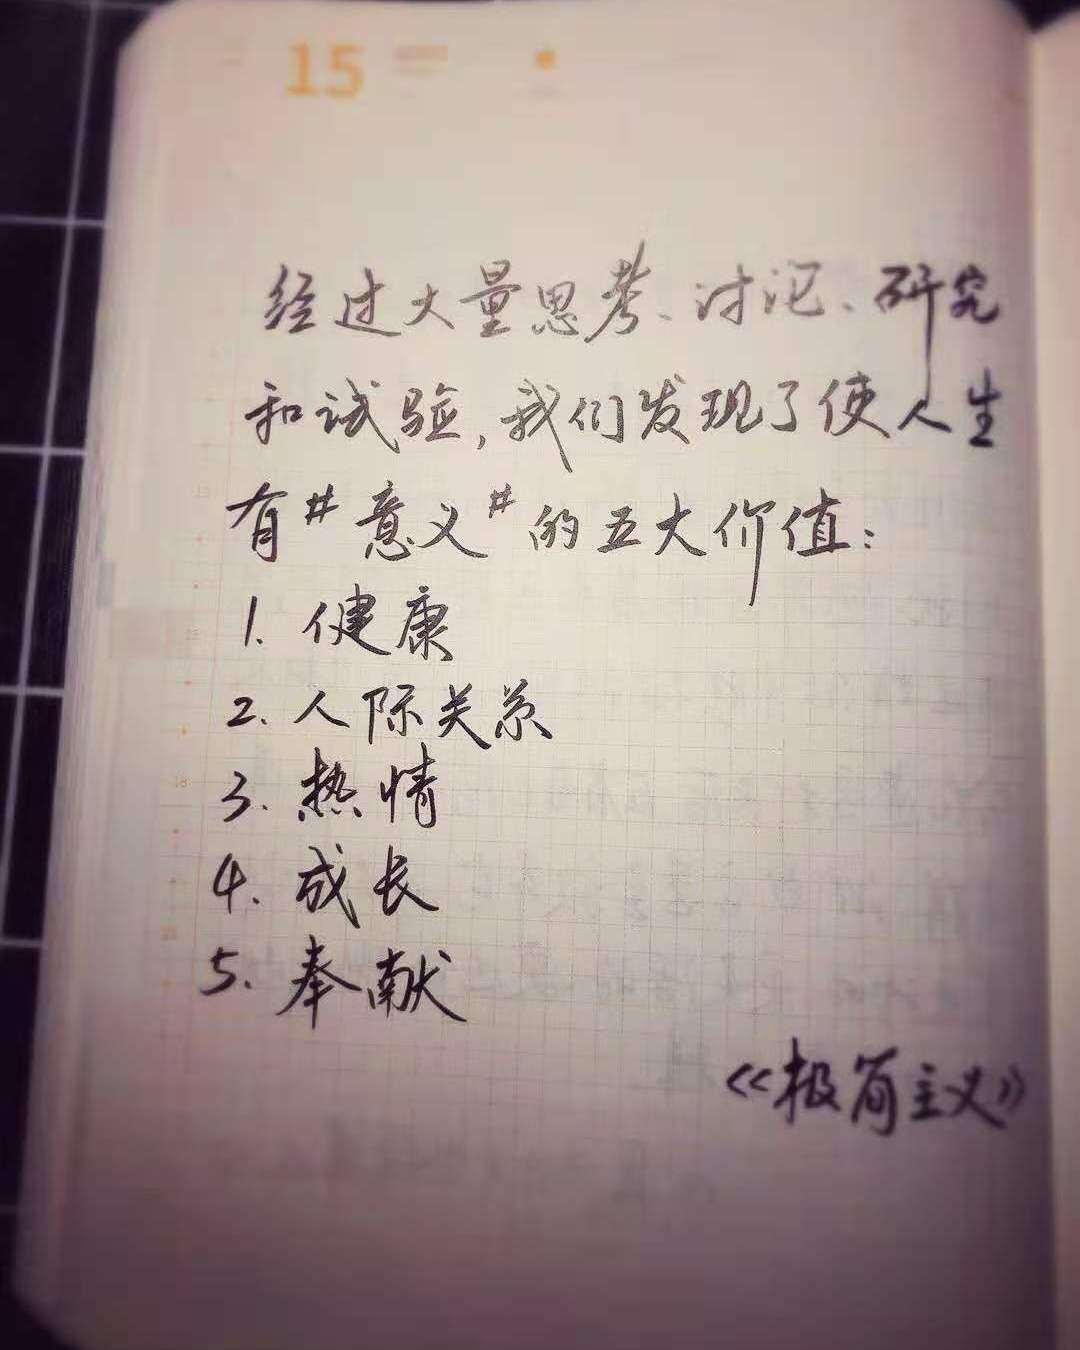 15
经过大量思考、讨论、研究
和试验,我们发现了使人生
有#意义#的五大价值:
1. 健康
2. 人际关系
3. 热情
4. 成长
5. 奉献
《极简主义》